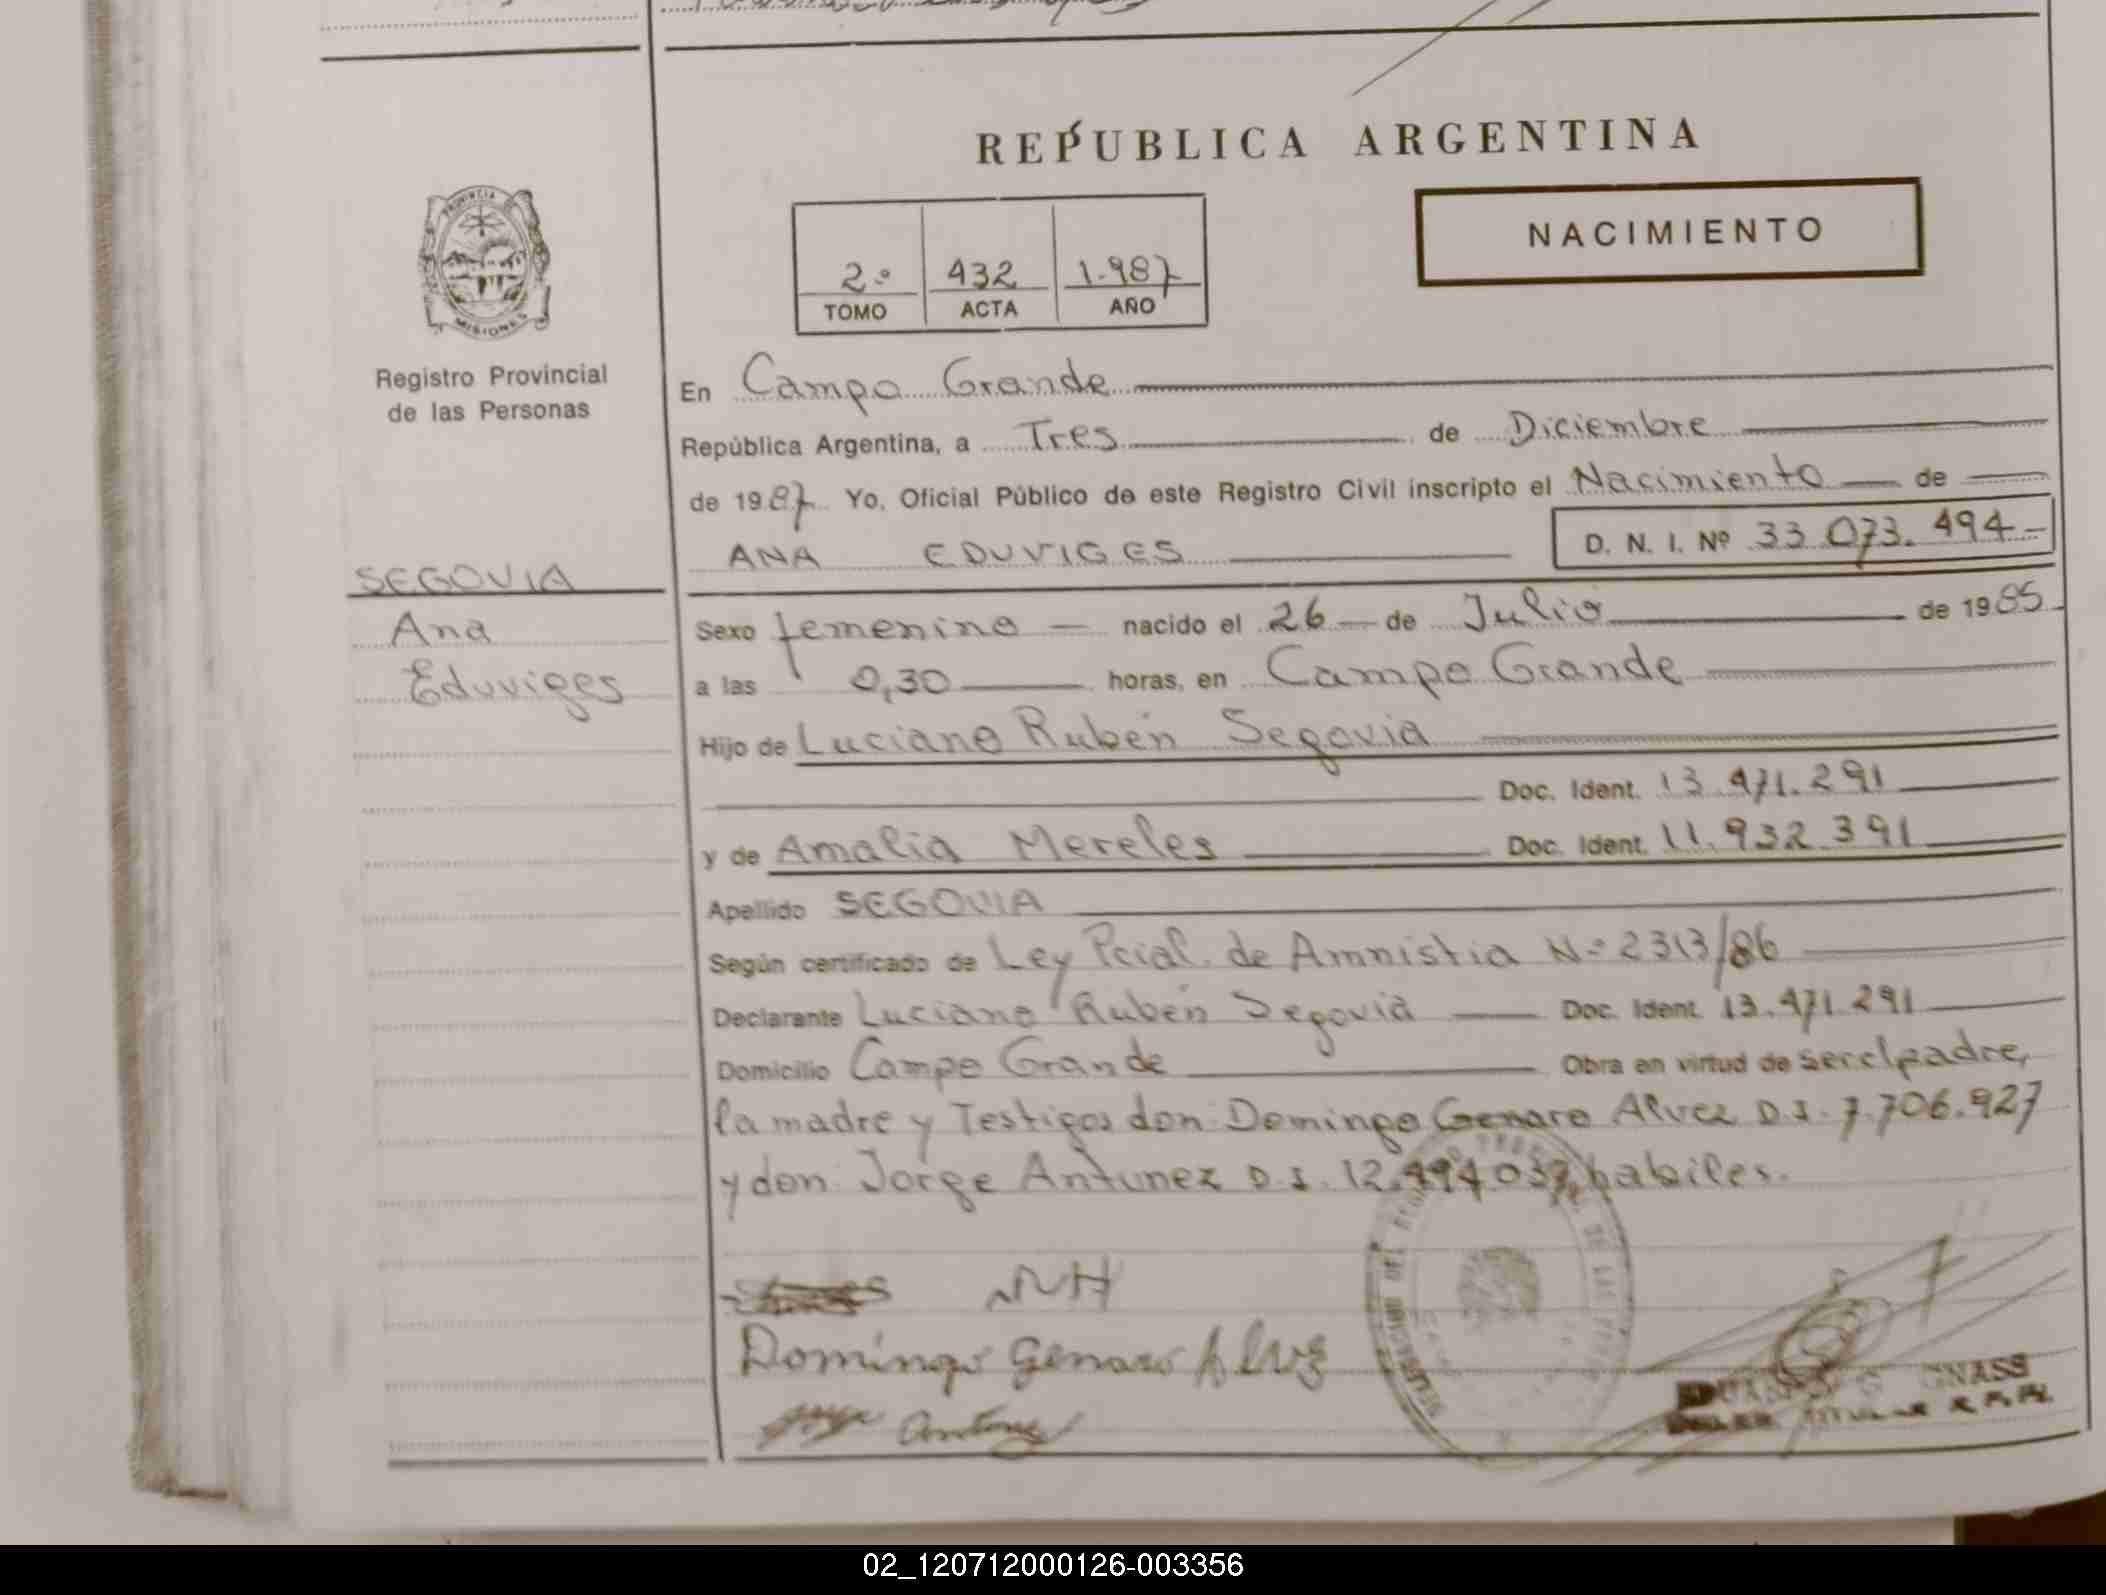 REPÚBLICA ARGENTINA
NACIMIENTO
2º 432 1.987
TOMO ACTA AÑO
PROVINCIA
MISIONES
Registro Provincial
de las Personas
SEGOVIA
Ana
Eduviges
En Campo Grande
República Argentina, a Tres de Diciembre
de 1987 Yo, Oficial Público de este Registro Civil inscripto el Nacimiento de
ANA EDUVIGES D. N. I. Nº 33.073.494
Sexo femenino nacido el 26 de Julio de 1985
a las 0,30 horas, en Campo Grande
Hijo de Luciano Rubén Segovia
Doc. Ident. 13.471.291
y de Amalia Mereles Doc. Ident. 11.932.391
Apellido SEGOVIA
Según certificado de Ley Pcial. de Amnistia Nº 2313/86
Declarante Luciano Rubén Segovia Doc. Ident. 13.471.291
Domicilio Campo Grande Obra en virtud de ser el padre,
la madre y Testigos don Domingo Genaro Alvez D.I. 7.706.927
y don Jorge Antunez D.I. 12.494.037, habiles.
Domingo Genaro Alvez
Jorge Antunez
02_120712000126-003356